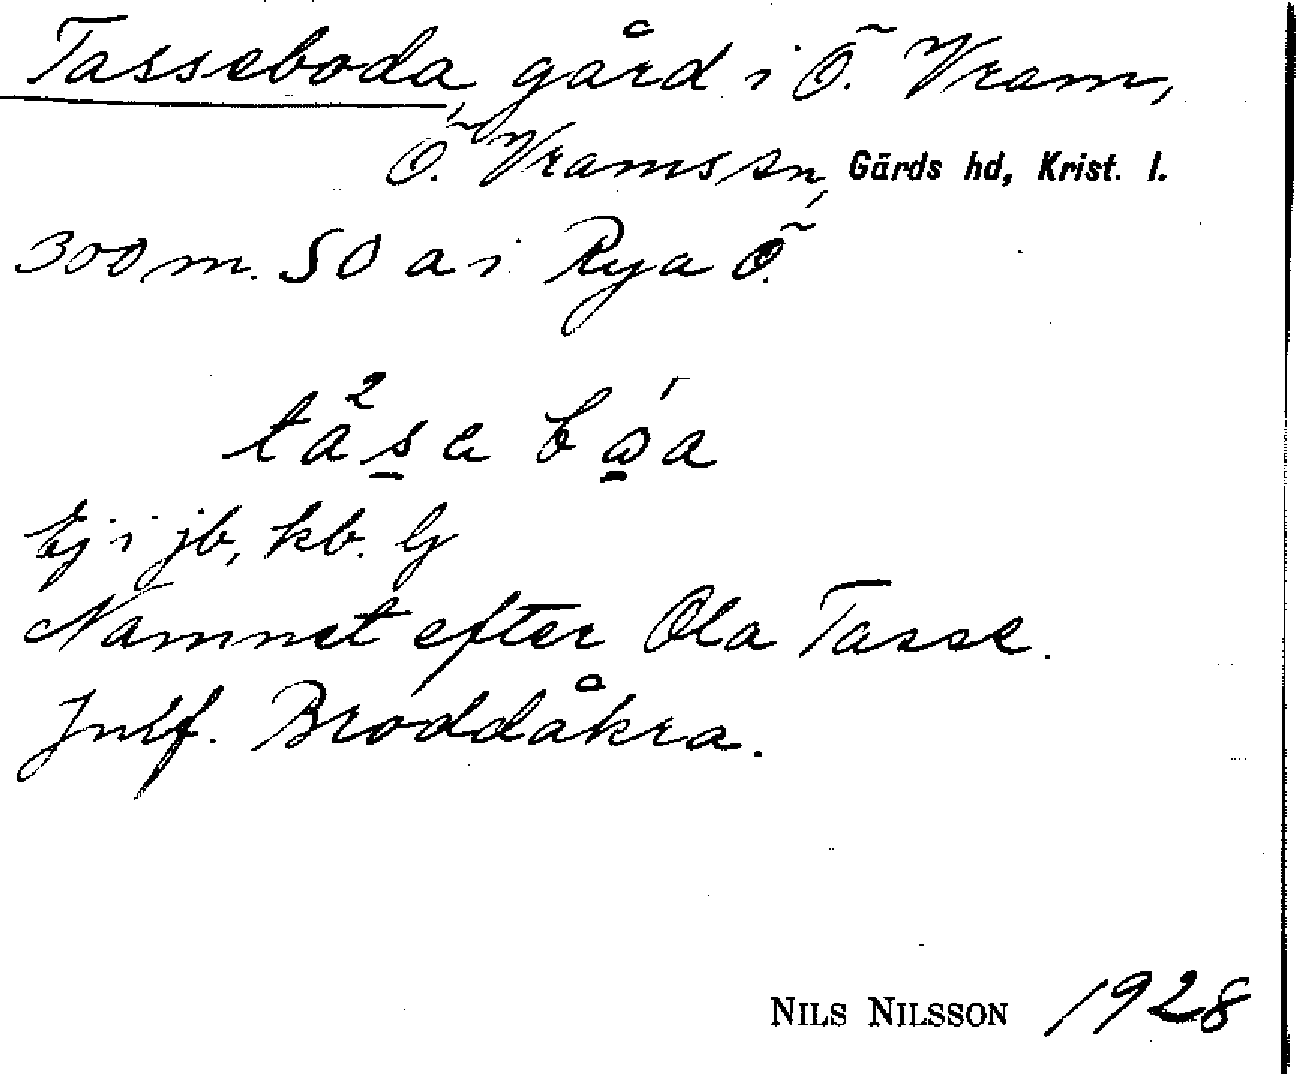 Tasseboda, gård i Ö. Vram,
Ö. Vrams sn, Gärds hd, Krist. l.
300 m. SO a i Rya Ö.
tása bóa
Ej i jb, kb. G
Namnet efter Ola Tasse.
Julf. Broddåkra.
NILS NILSSON 1928